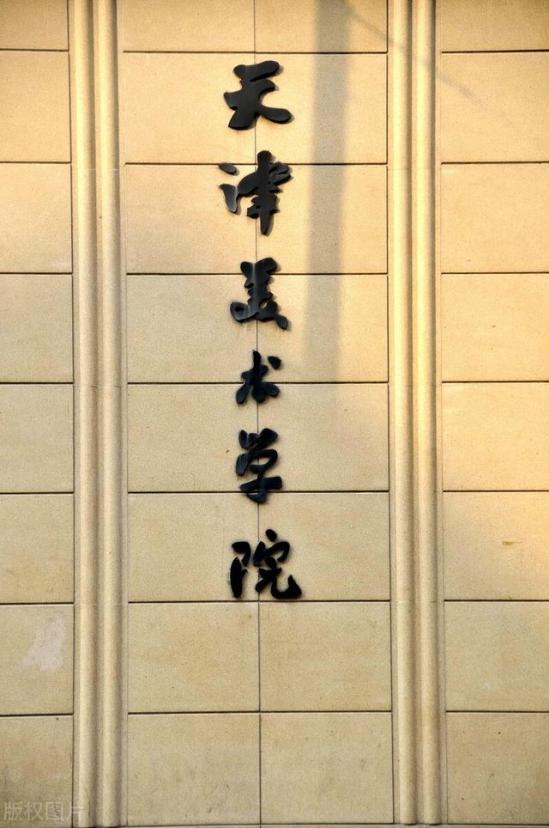 天津美术学院
版权图片